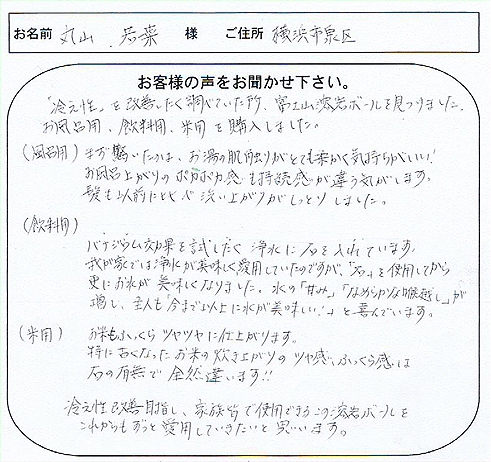 お名前 丸山 若菜 様 ご住所 横浜市泉区
お客様の声をお聞かせ下さい。
「冷え性」を改善したく調べていた所、富士山溶岩ボールを見つけました。
お風呂用、飲料用、米用を購入しました。
(風呂用) まず驚いたのは、お湯の肌触りがとても柔かく気持ちがいい!
お風呂上がりのポカポカ感も持続感が違う気がします。
髪も以前にとヒベ洗い上がりがしっとりしました。
(飲料用)
バナジウム効果を試したく浄水に石を入れています。
我が家では浄水が美味しく愛用していたのですが、「石」を使用してから
更にお水が美味しくなりました。水の「甘み」「なめらかな喉越し」が
増し、主人も「今まで以上に水が美味しい!」と喜んでいます。
(米用) お米もふっくらツヤツヤに仕上がります。
特に古くなったお米の炊き上がりのツヤ感、ふっくら感は
石の有無で全然違います!!
冷え性改善目指し、家族皆で使用できるこの溶岩ボールを
これからもずっと愛用していきたいと思います。